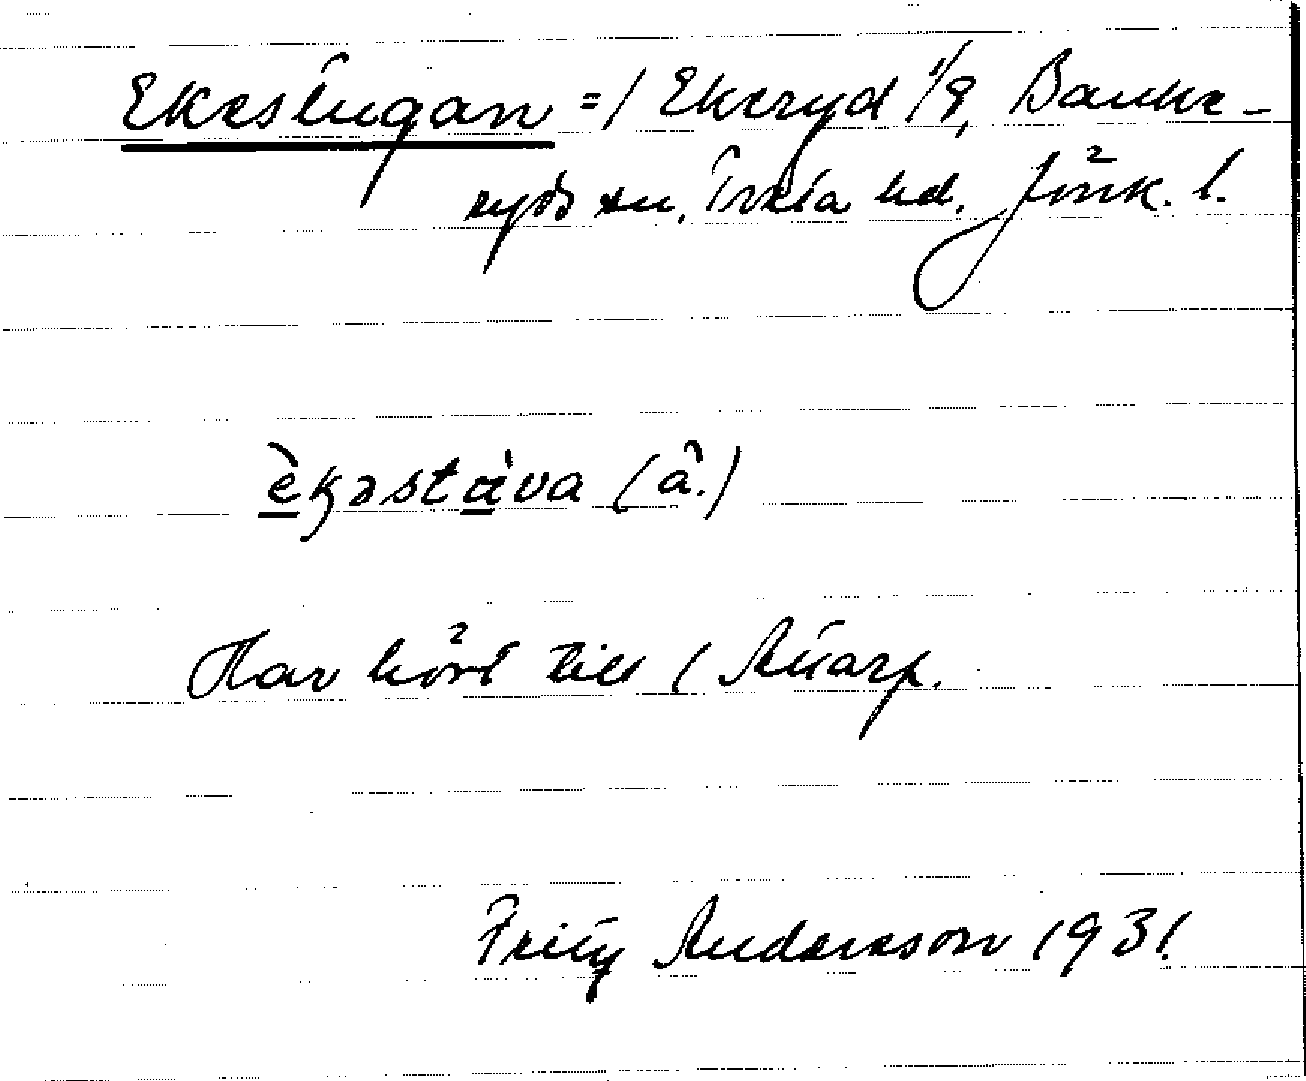 Ekestugan = / Ekeryd 1/8, Banke-
ryds sn, Tveta hd. Jönk. l.
èkəstàva (â.)
Har hört till / Attarp.
Fritz Andersson 1931.